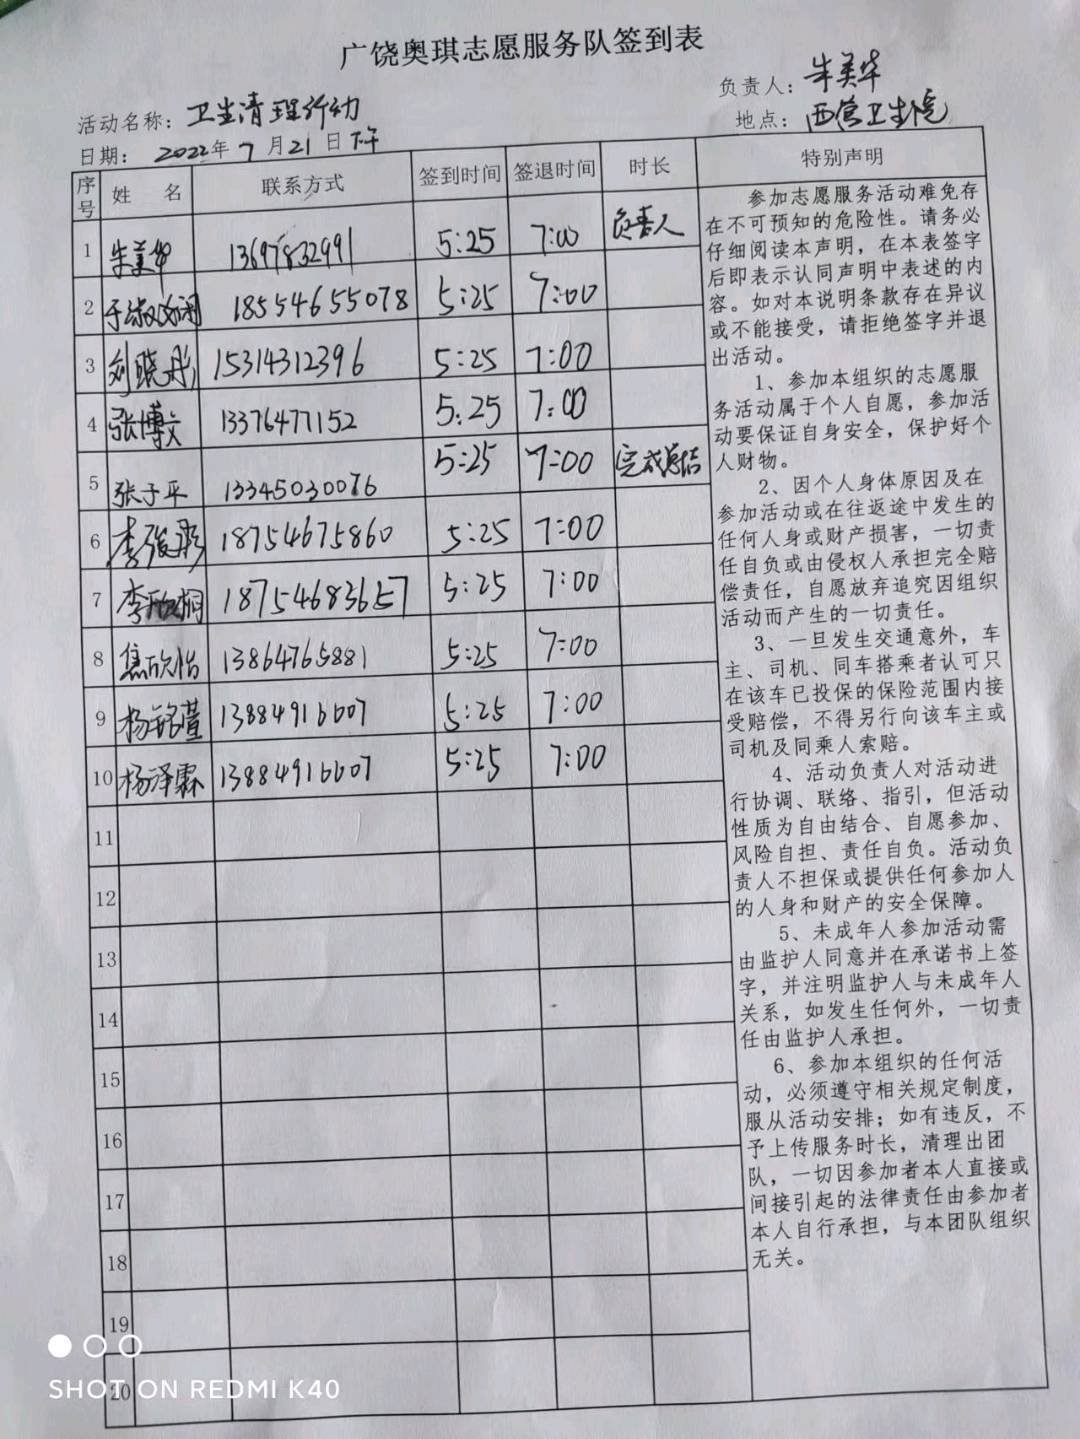 广饶奥琪志愿服务队签到表
负责人：朱美华
活动名称：卫生清理行动
地点：西营卫生院
日期：2022年7月21日下午
序号 姓名 联系方式 签到时间 签退时间 时长 特别声明
1 朱美华 13697832991 5:25 7:00 负责人
2 18554655078 5:25 7:00
3 刘晓彤 15314312396 5:25 7:00
4 张博文 13376477152 5:25 7:00
5 张子平 13345030076 5:25 7:00 完成总结
6 李俊彤 18754675860 5:25 7:00
7 李欣桐 18754683657 5:25 7:00
8 焦欣怡 13864765881 5:25 7:00
9 杨铭萱 13884916007 5:25 7:00
10 杨泽霖 13884916007 5:25 7:00
11
12
13
14
15
16
17
18
19
20
参加志愿服务活动难免存
在不可预知的危险性。请务必
仔细阅读本声明，在本表签字
后即表示认同声明中表述的内
容。如对本说明条款存在异议
或不能接受，请拒绝签字并退
出活动。
1、参加本组织的志愿服
务活动属于个人自愿，参加活
动要保证自身安全，保护好个
人财物。
2、因个人身体原因及在
参加活动或在往返途中发生的
任何人身或财产损害，一切责
任自负或由侵权人承担完全赔
偿责任，自愿放弃追究因组织
活动而产生的一切责任。
3、一旦发生交通意外，车
主、司机、同车搭乘者认可只
在该车已投保的保险范围内接
受赔偿，不得另行向该车主或
司机及同乘人索赔。
4、活动负责人对活动进
行协调、联络、指引，但活动
性质为自由结合、自愿参加、
风险自担、责任自负。活动负
责人不担保或提供任何参加人
的人身和财产的安全保障。
5、未成年人参加活动需
由监护人同意并在承诺书上签
字，并注明监护人与未成年人
关系，如发生任何外，一切责
任由监护人承担。
6、参加本组织的任何活
动，必须遵守相关规定制度，
服从活动安排；如有违反，不
予上传服务时长，清理出团
队，一切因参加者本人直接或
间接引起的法律责任由参加者
本人自行承担，与本团队组织
无关。
SHOT ON REDMI K40